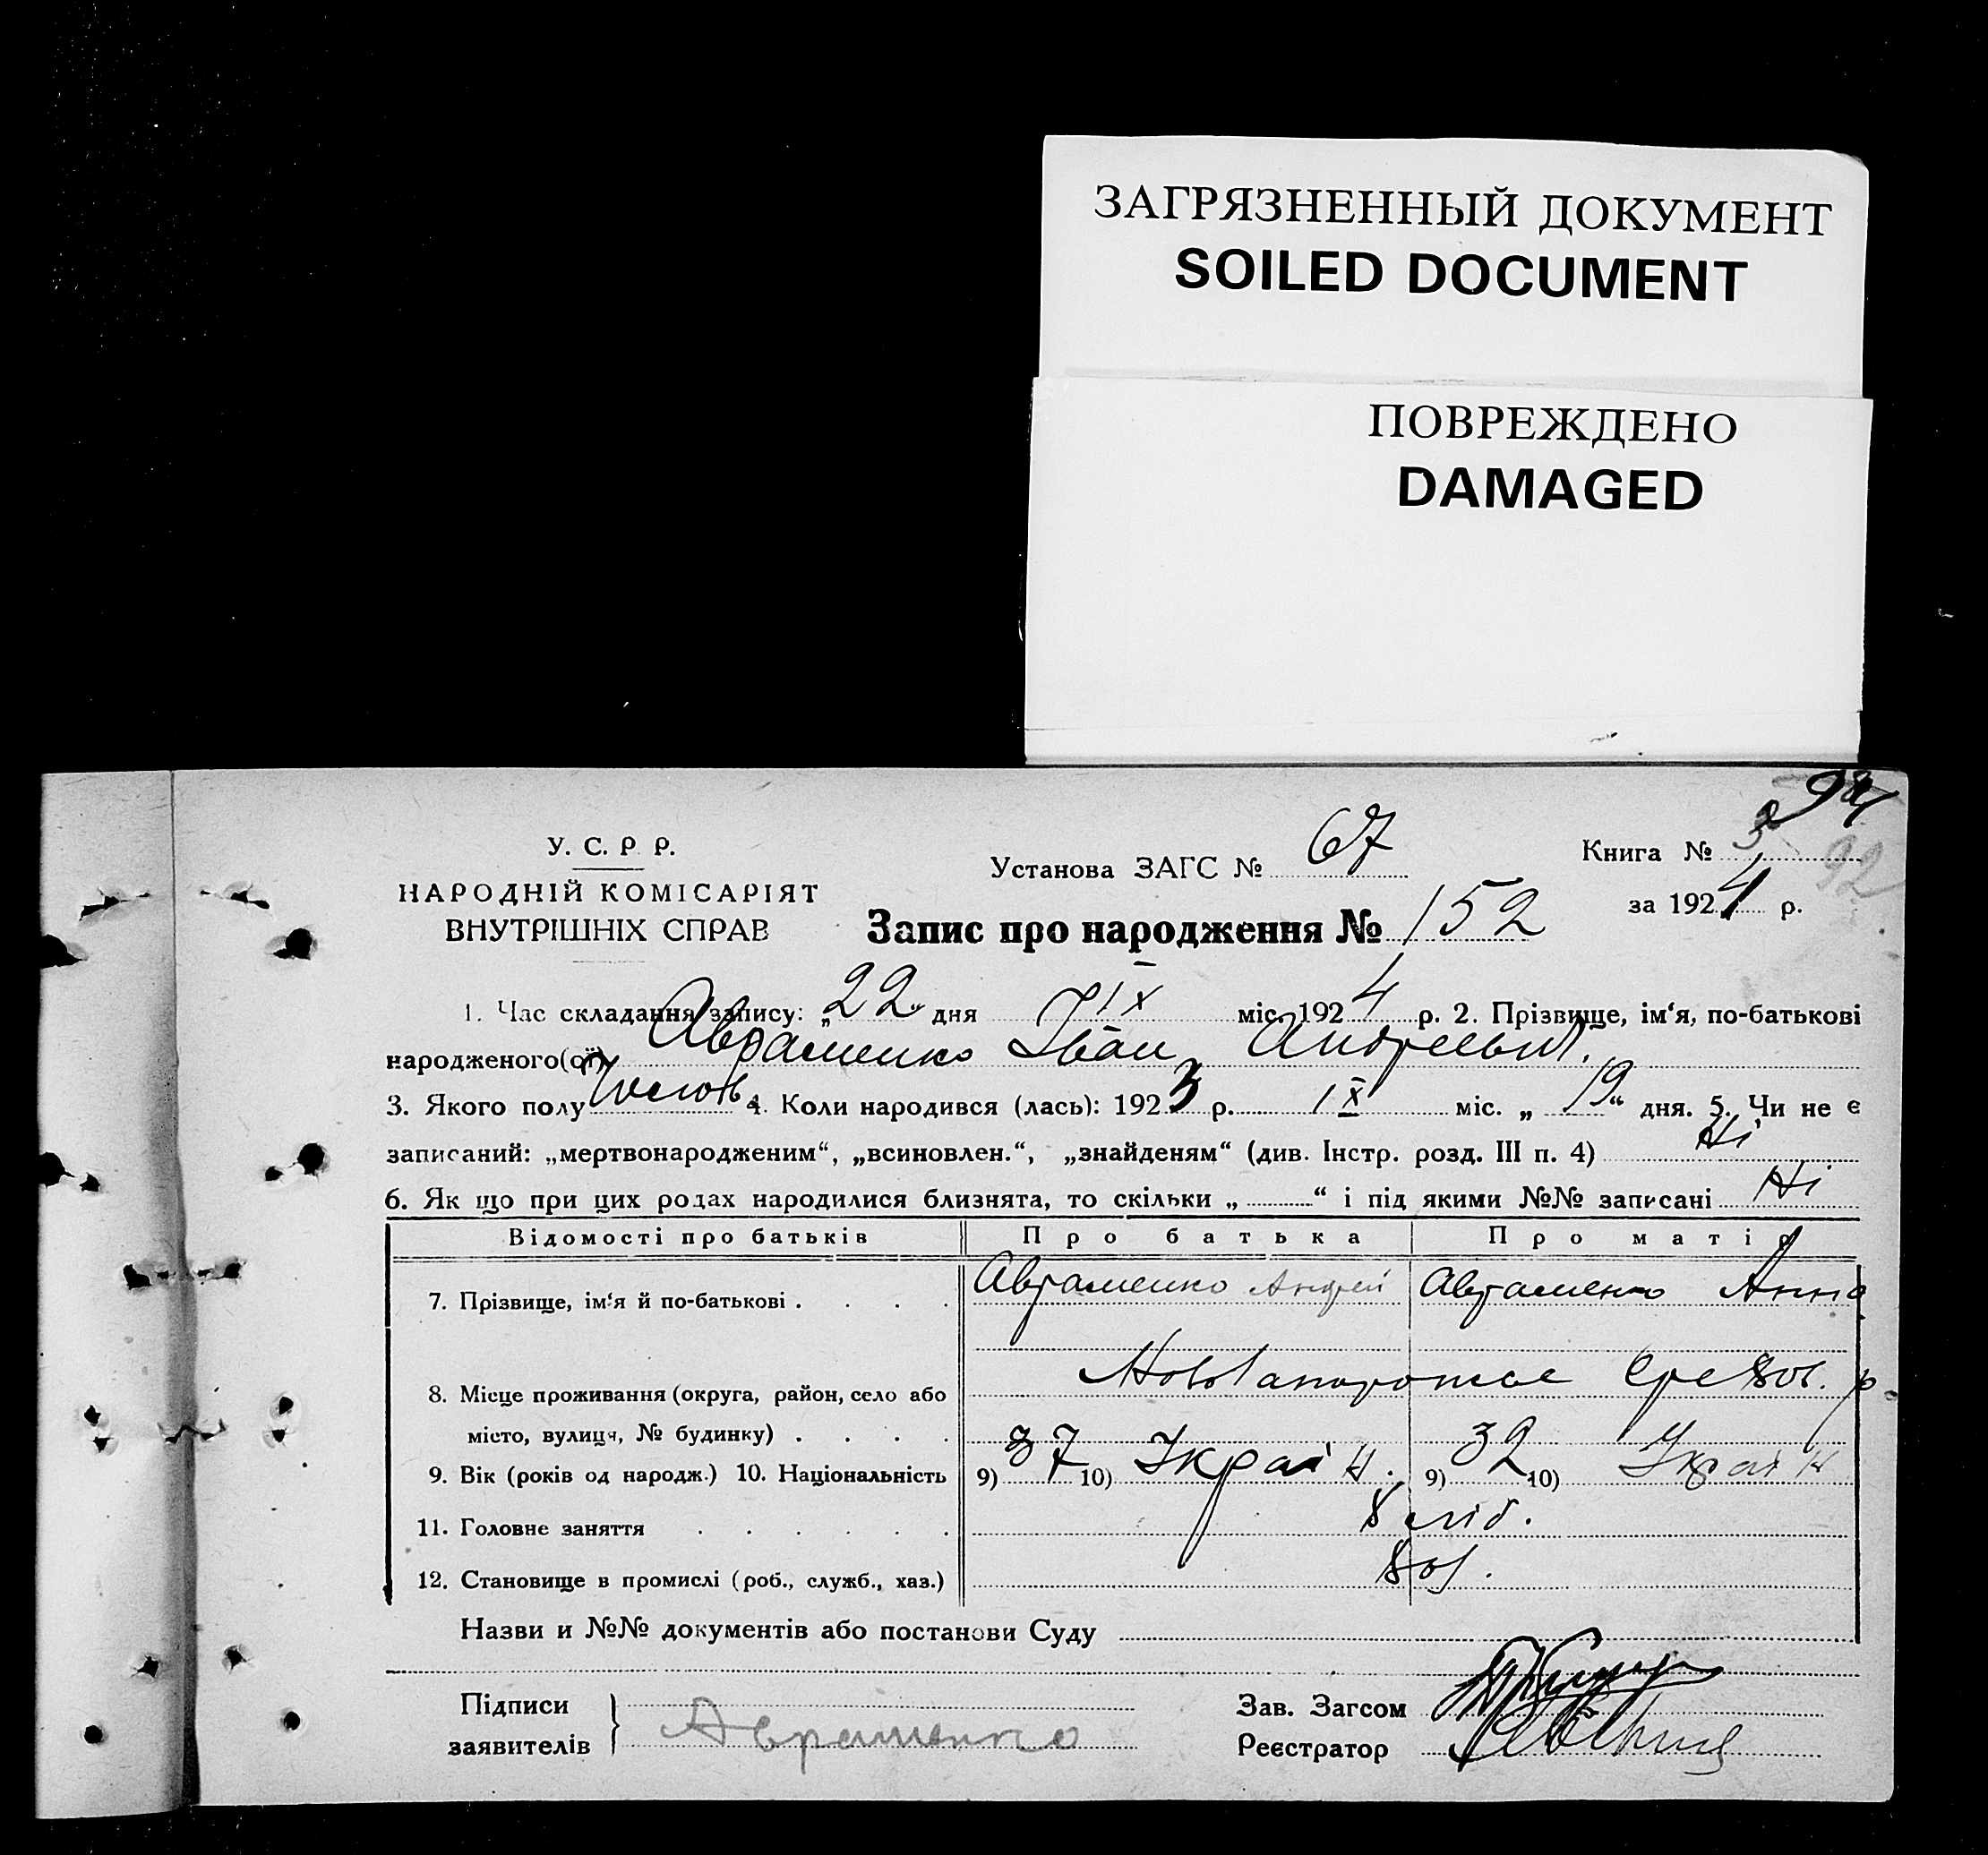 ЗАГРЯЗНЕННЫЙ ДОКУМЕНТ
SOILED DOCUMENT
ПОВРЕЖДЕНО
DAMAGED
92
У. С. Р. Р.
НАРОДНІЙ КОМІСАРІЯТ
ВНУТРІШНІХ СПРАВ
Установа ЗАГС № 67
Книга № 3
за 1924 р.
Запис про народження № 152
1. Час складання запису: „22“ дня IX міс. 1924 р. 2. Прізвище, ім‘я, по-батькові
народженого(ої) Авраменко Іван Андреевич.
3. Якого полу 4. Коли народився (лась): 1923 р. IX міс. „19“ дня. 5. Чи не є
записаний: „мертвонародженим“, „всиновлен.“, „знайденям“ (див. Інстр. розд. III п. 4) Ні
6. Як що при цих родах народилися близнята, то скільки „ “ і під якими №№ записані Ні
Відомості про батьків Про батька Про матір
7. Прізвище, ім‘я й по-батькові . . . . Авраменко Андрей Авраменко Анна
8. Місце проживання (округа, район, село або
місто, вулиця, № будинку) . . . .
9. Вік (років од народж.) 10. Національність 9) 37 10) Україн. 9) 32 10) Україн
11. Головне заняття . . . . . . хліб.
12. Становище в промислі (роб., служб., хаз.)
Назви и №№ документів або постанови Суду
Підписи
заявителів } Авраменко
Зав. Загсом
Реєстратор